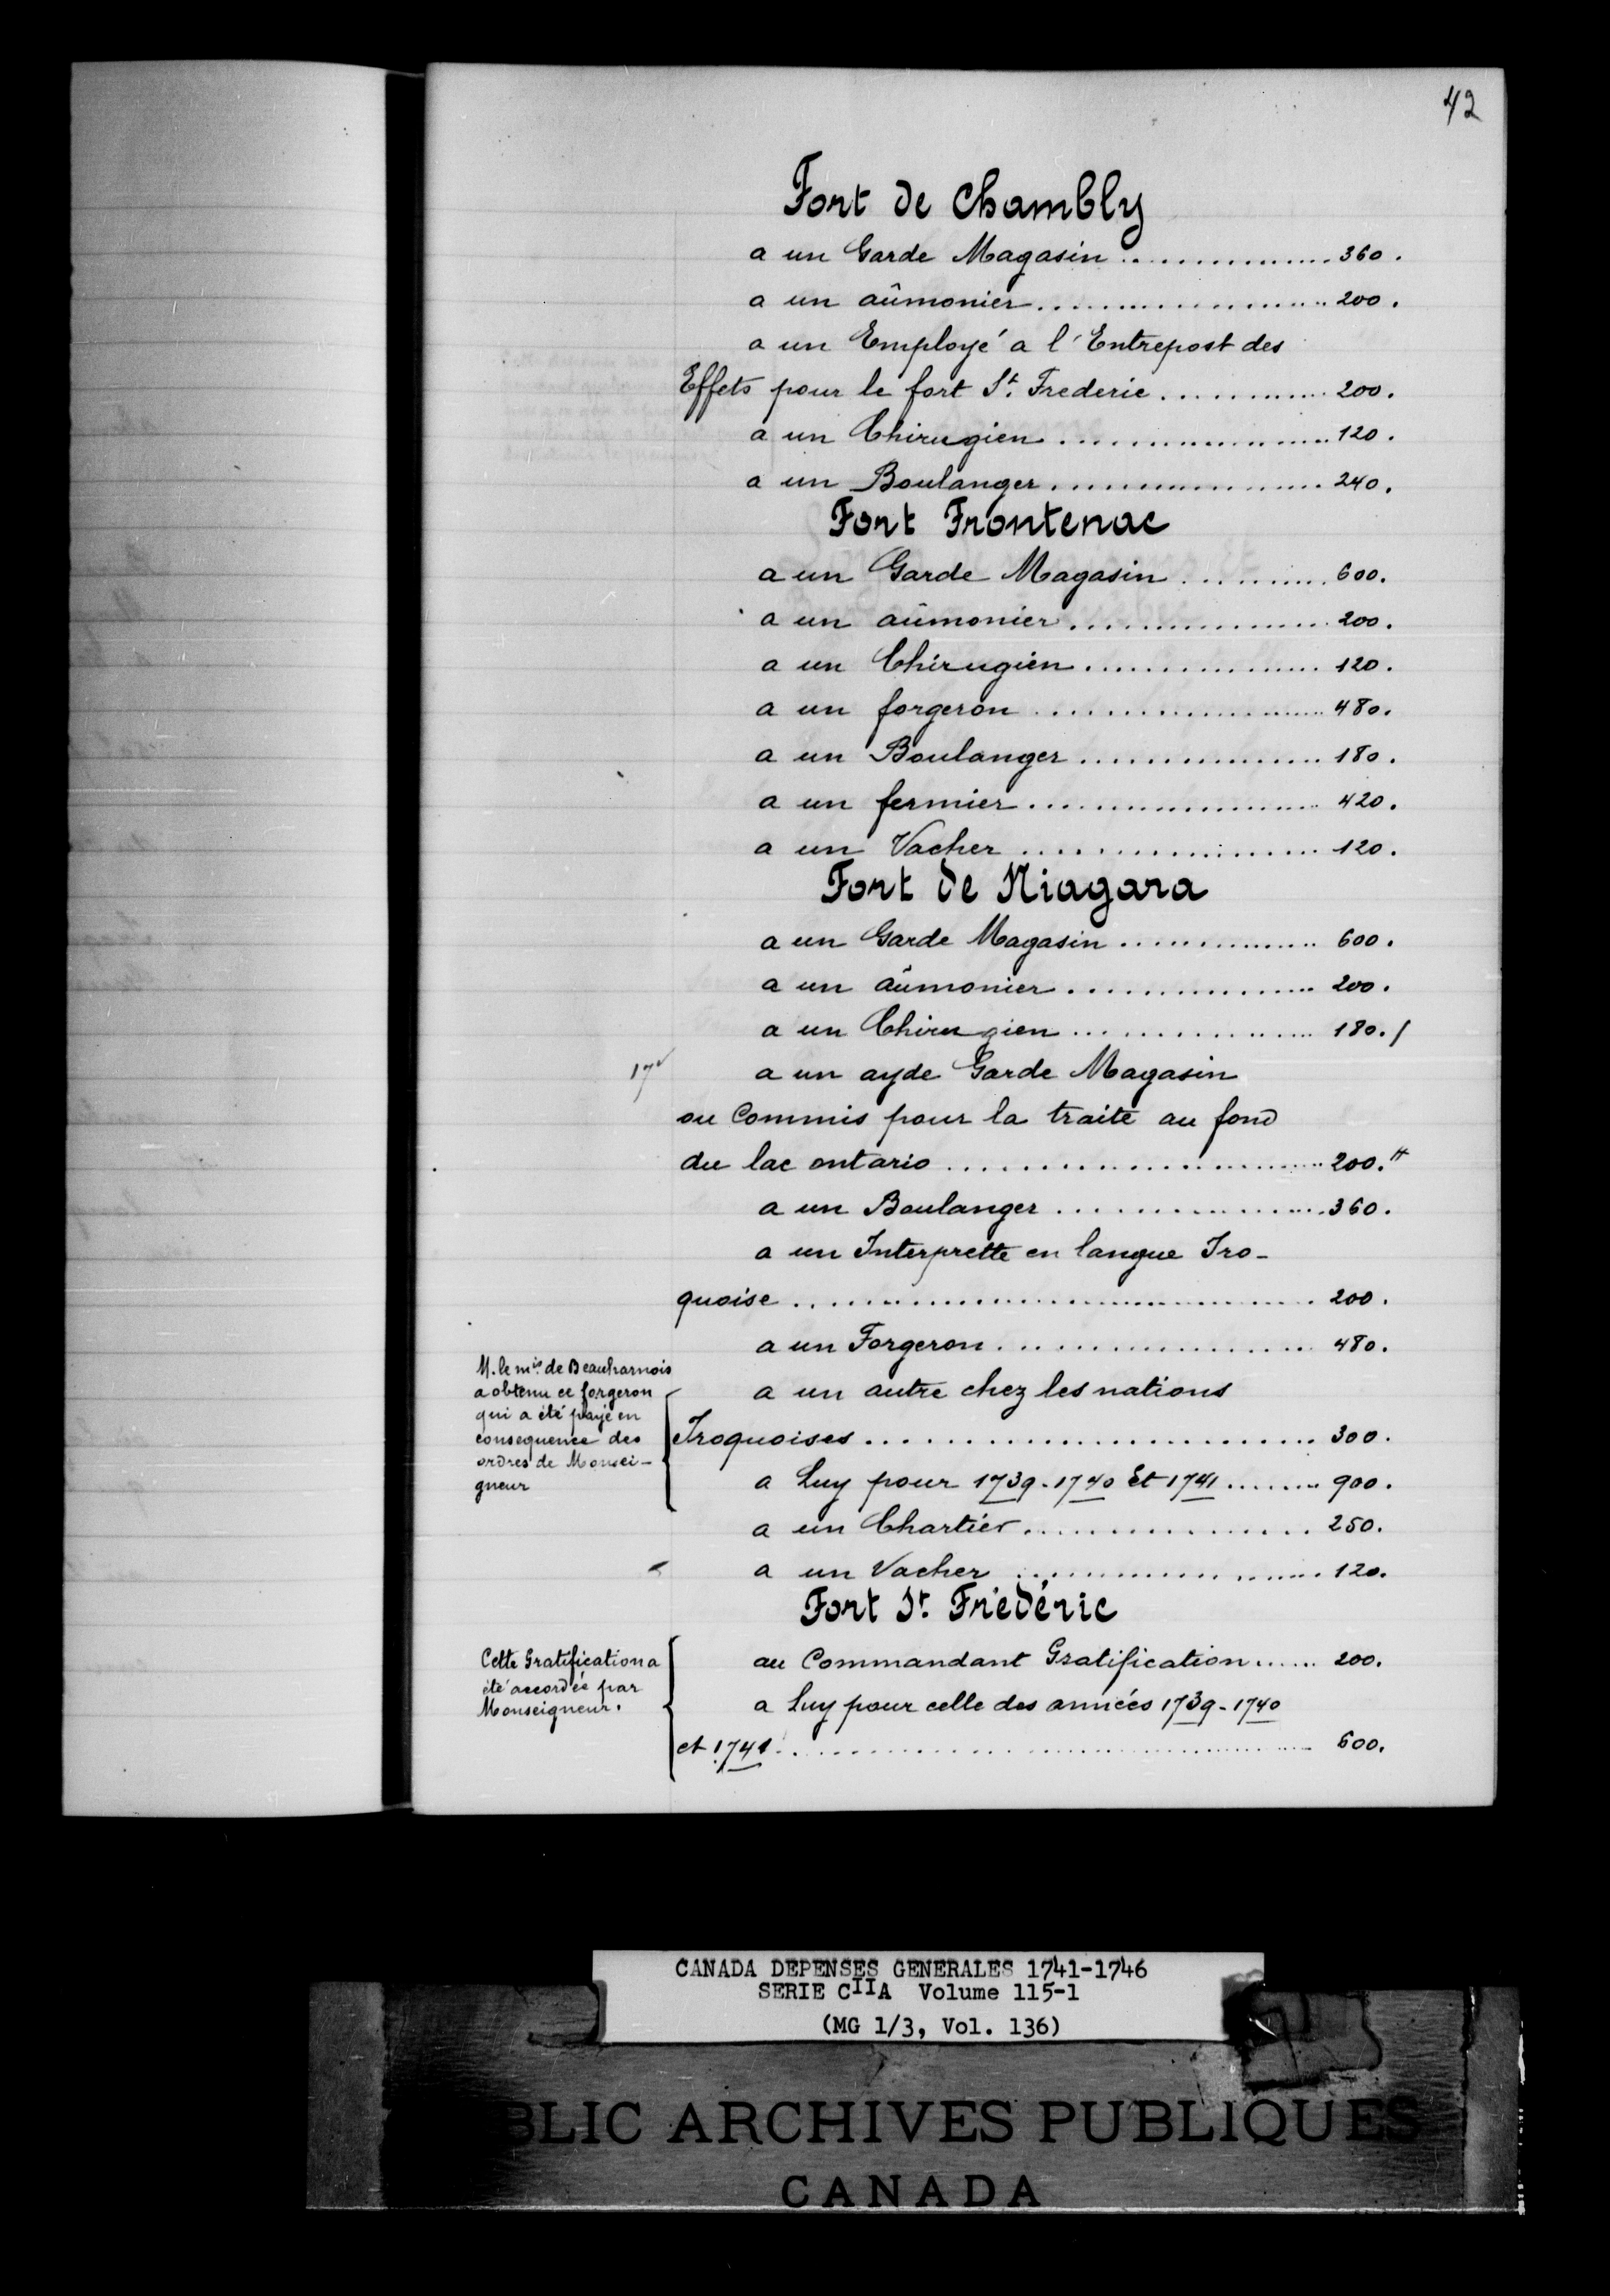 42
Fort de Chambly
a un Garde Magasin ................ 360.
a un aûmonier ..................... 200.
a un Employé a l'Entrepost des
Effets pour le fort St. Frederic ............ 200.
a un Chirugien ................... 120.
a un Boulanger ................... 240.
Fort Frontenac
a un Garde Magasin ........... 600.
a un aûmonier .................. 200.
a un Chirugien ................. 120.
a un forgeron ..................... 480.
a un Boulanger ................. 180.
a un fermier ..................... 420.
a un Vacher ..................... 120.
Fort de Niagara
a un Garde Magasin .............. 600.
a un aûmonier ................. 200.
a un Chirugien ................. 180. /
17v
a un ayde Garde Magasin
ou Commis pour la traite au fond
du lac ontario .......................... 200.#
a un Boulanger ................... 360.
a un Interprette en langue Iro-
quoise ..................................... 200.
a un Forgeron ...................... 480.
M. le mis. de Beauharnois
a obtenu ce forgeron
qui a été payé en
consequence des
ordres de Monsei-
gneur
a un autre chez les nations
Iroquoises .............................. 300.
a Luy pour 1739-1740 Et 1741 ........ 900.
a un Chartier .................... 250.
a un Vacher ..................... 120.
Fort St. Frédéric
Cette Gratification a
été accordée par
Monseigneur.
au Commandant Gratification ...... 200.
a Luy pour celle des années 1739-1740
et 1741 ..................................... 600.
CANADA DEPENSES GENERALES 1741-1746
SERIE CIIA Volume 115-1
(MG 1/3, Vol. 136)
BLIC ARCHIVES PUBLIQUES
CANADA